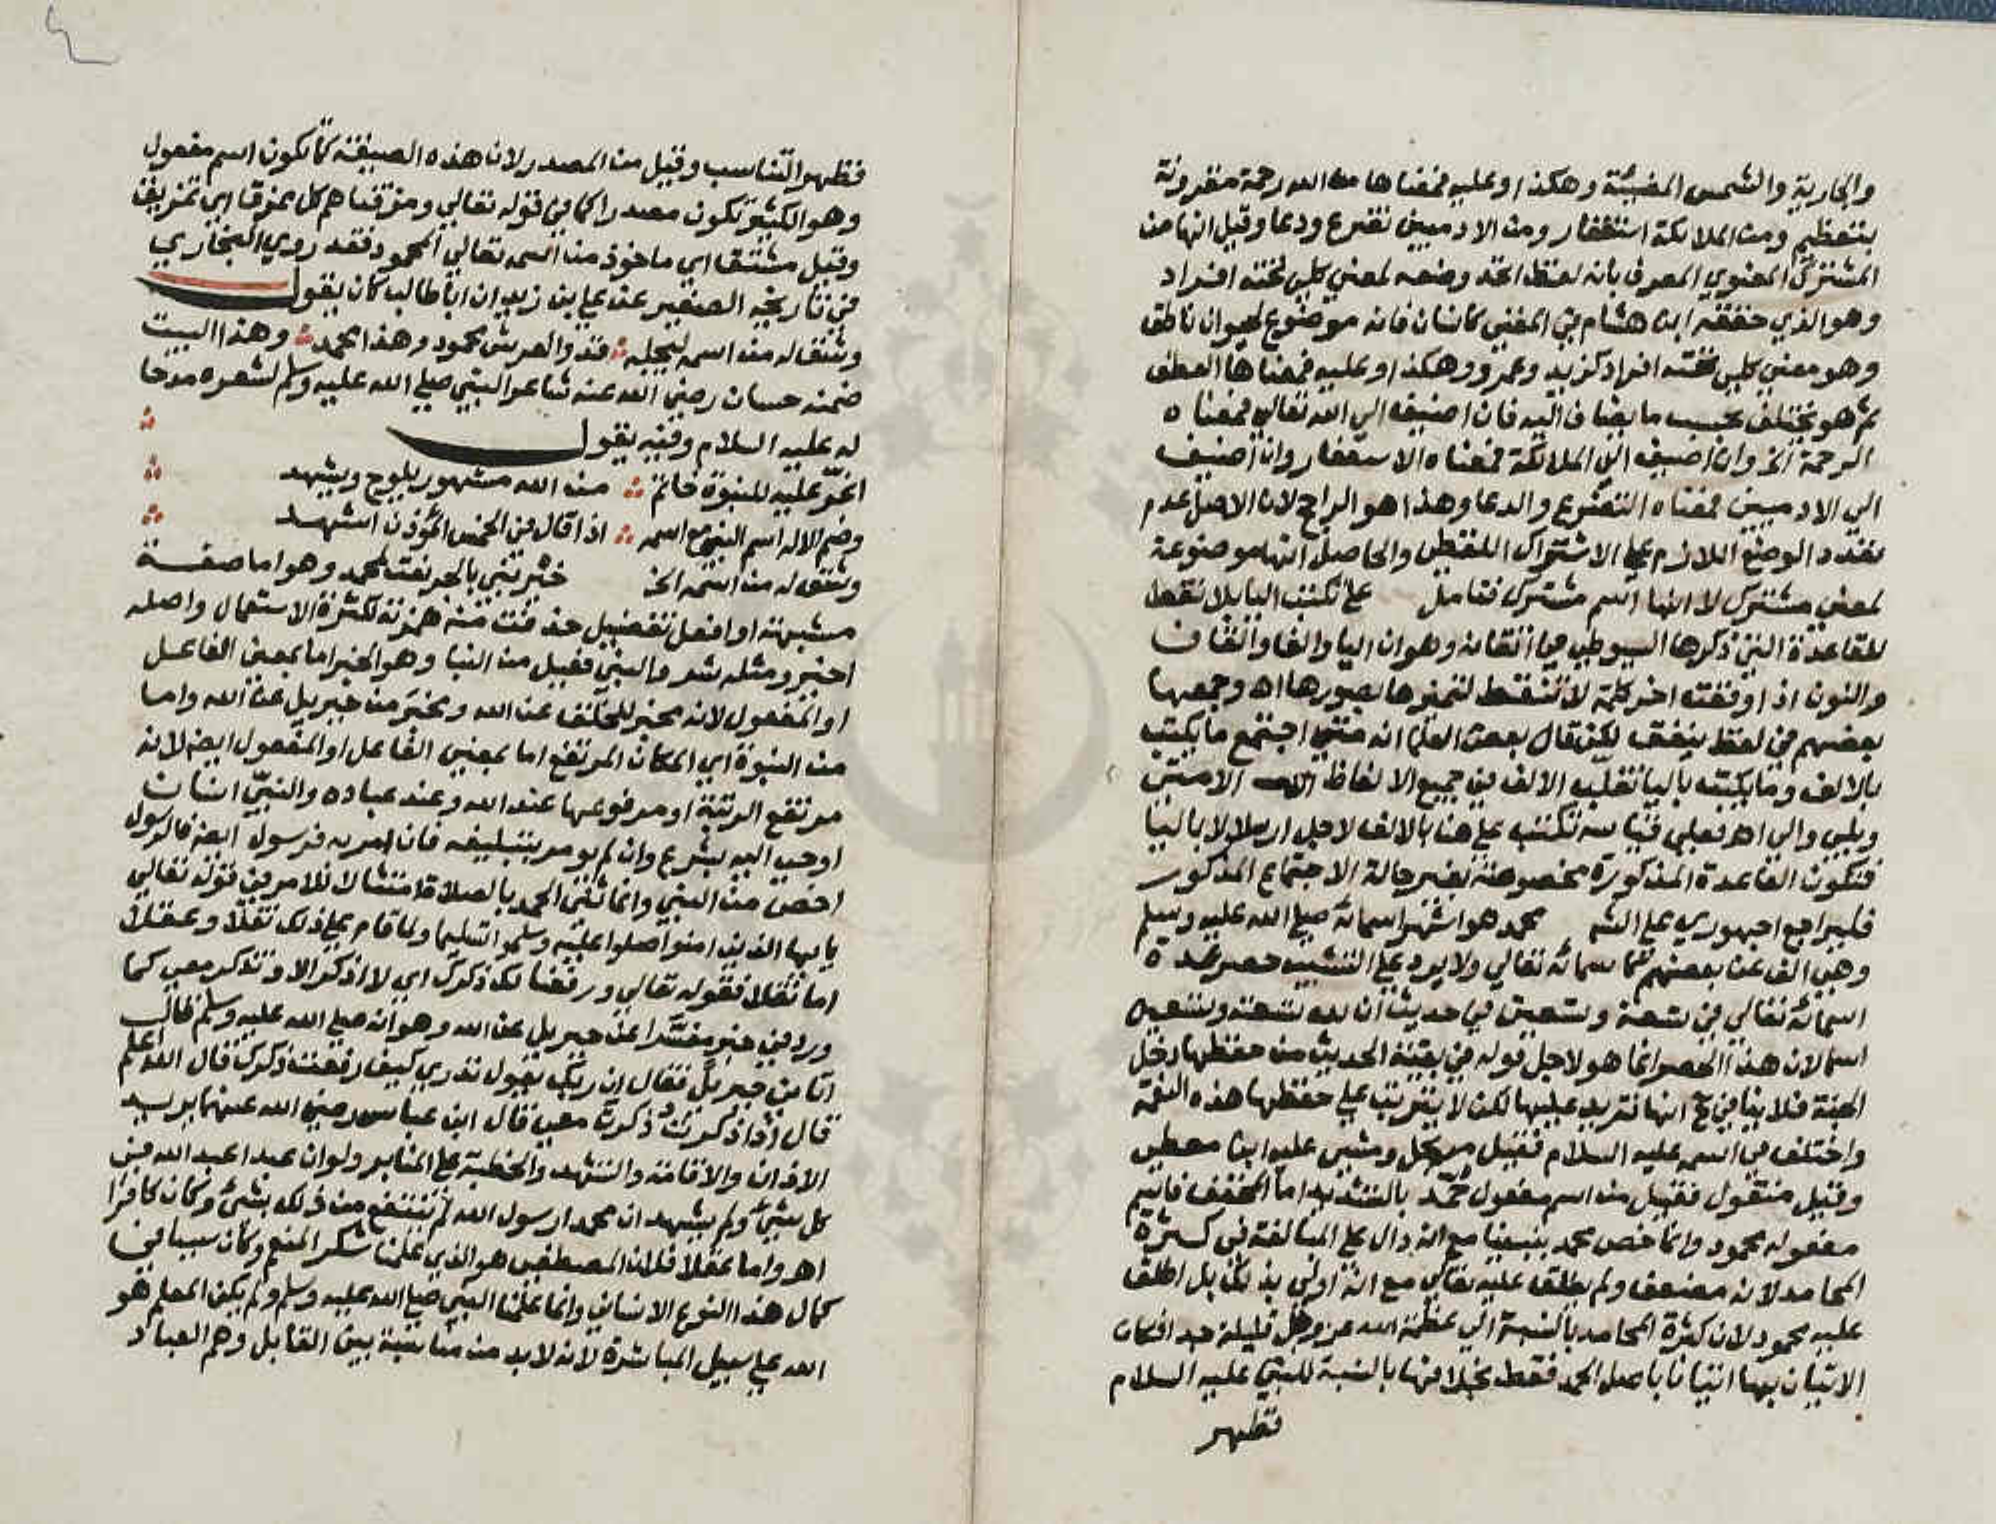 والجارية والشمس المضيئة وهكذا وعليه فمعناها من الله رحمة مقرونة
بتعظيم ومن الملائكة استغفار ومن الادميين تضرع ودعا وقيل انها من
المشترك المعنوي المعرف بانه لفظ اتحد وضعه لمعنى كلي تحته افراد
وهو الذي حققه ابن هشام في المغني كانسان فانه موضوع لحيوان ناطق
وهو معنى كلي تحته افراد كزيد وعمرو وهكذا وعليه فمعناها العطف
ثم هو يختلف بحسب ما يضاف اليه فان اضيف الى الله تعالى فمعناه
الرحمة الخ وان اضيف الى الملائكة فمعناه الاستغفار وان اضيف
الى الادميين فمعناه التضرع والدعا وهذا هو الراجح لان الاصل عدم
تعدد الوضع اللازم على الاشتراك اللفظي والحاصل انها موضوعة
لمعنى مشترك لا انها اسم مشترك فتامل على تكتب اليا بلا نقط
للقاعدة التي ذكرها السيوطي في اتقانه وهو ان اليا والفا والقاف
والنون اذا وقعت اخر كلمة لا تنقط لتميزها بصورها اه وجمعها
بعضهم في لفظ ينفق لكن قال بعض العلما انه متى اجتمع ما يكتب
بالالف وما يكتب باليا تغلب الالف في جميع الالفاظ الا متى
وبلى والى اه فعلى قياسه تكتب على هنا بالالف لاجل ارسلا لا باليا
فتكون القاعدة المذكورة مخصوصة بغير حالة الاجتماع المذكور
فليراجع اجهوري على الشـ محمد هو اشهر اسمائه صلى الله عليه وسلم
وهي الف عن بعضهم كاسمائه تعالى ولا يرد على التشبيه حصر عدة
اسمائه تعالى في تسعة وتسعين في حديث ان لله تسعة وتسعين
اسما لان هذا الحصر انما هو لاجل قوله في بقية الحديث من حفظها دخل
الجنة فلا ينافي انها تزيد عليها لكن لا يترتب على حفظها هذه النعمة
واختلف في اسمه عليه السلام فقيل مرتجل ومشى عليه ابن معطي
وقيل منقول فقيل من اسم مفعول حمّد بالتشديد اما المخفف فاسم
مفعوله محمود وانما خص محمد بنبينا مع انه دال على المبالغة في كثرة
المحامد لانه مضعف ولم يطلق عليه تعالى مع انه اولى بذلك بل اطلق
عليه محمود لان كثرة المحامد بالنسبة الى عظمة الله عز وجل قليلة جدا فكان
الاتيان بهما اتيانا باصل الحمد فقط بخلافها بالنسبة للنبي عليه السلام
فظهر
فظهر التناسب وقيل من المصدر لان هذه الصيغة كما تكون اسم مفعول
وهو الكثير تكون مصدرا كما في قوله تعالى ومزقناهم كل ممزق اي تمزيق
وقيل مشتق اي ماخوذ من اسمه تعالى المحمود فقد روى البخاري
في تاريخه الصغير عن علي بن زيد ان ابا طالب كان يقول
وشق له من اسمه ليجله فذو العرش محمود وهذا محمد وهذا البيت
ضمنه حسان رضي الله عنه شاعر النبي صلى الله عليه وسلم لشعره مدحا
له عليه السلام وفيه يقول
اغر عليه للنبوة خاتم من الله مشهور يلوح ويشهد
وضم الاله اسم النبي مع اسمه اذا قال في الخمس المؤذن اشهد
وشق له من اسمه الخ خير نبي بالجر نعت لمحمد وهو اما صفة
مشبهة او افعل تفضيل حذفت منه همزته لكثرة الاستعمال واصله
اخير ومثله شر والنبي فعيل من النبا وهو الخبر اما بمعنى الفاعل
او المفعول لانه مخبر للخلق عن الله ومخبر من جبريل عن الله واما
من النبوة اي المكان المرتفع اما بمعنى الفاعل او المفعول ايضا لانه
مرتفع الرتبة او مرفوعها عند الله وعند عباده والنبي انسان
اوحي اليه بشرع وان لم يومر بتبليغه فان امر به فرسول ايضا فالرسول
اخص من النبي وانما ثنى الحمد بالصلاة امتثالا للامر في قوله تعالى
يايها الذين امنوا صلوا عليه وسلموا تسليما ولما قام على ذلك نقلا وعقلا
اما نقلا فقوله تعالى ورفعنا لك ذكرك اي لا اذكر الا وتذكر معي كما
ورد في خبر مفسرا عن جبريل عن الله وهو انه صلى الله عليه وسلم قال
اتاني جبريل فقال ان ربك يقول تدري كيف رفعت ذكرك قال الله اعلم
قال اذا ذكرت ذكرت معي قال ابن عباس رضي الله عنهما يريد
الاذان والاقامة والتشهد والخطبة على المنابر ولو ان عبدا عبد الله في
كل شيء ولم يشهد ان محمدا رسول الله لم ينتفع من ذلك بشيء وكان كافرا
اه واما عقلا فلان المصطفى هو الذي علمنا شكر المنعم وكان سببا في
كمال هذا النوع الانساني وانما علمنا النبي صلى الله عليه وسلم ولم يكن المعلم هو
الله على سبيل المباشرة لانه لا بد من مناسبة بين القابل وهم العباد